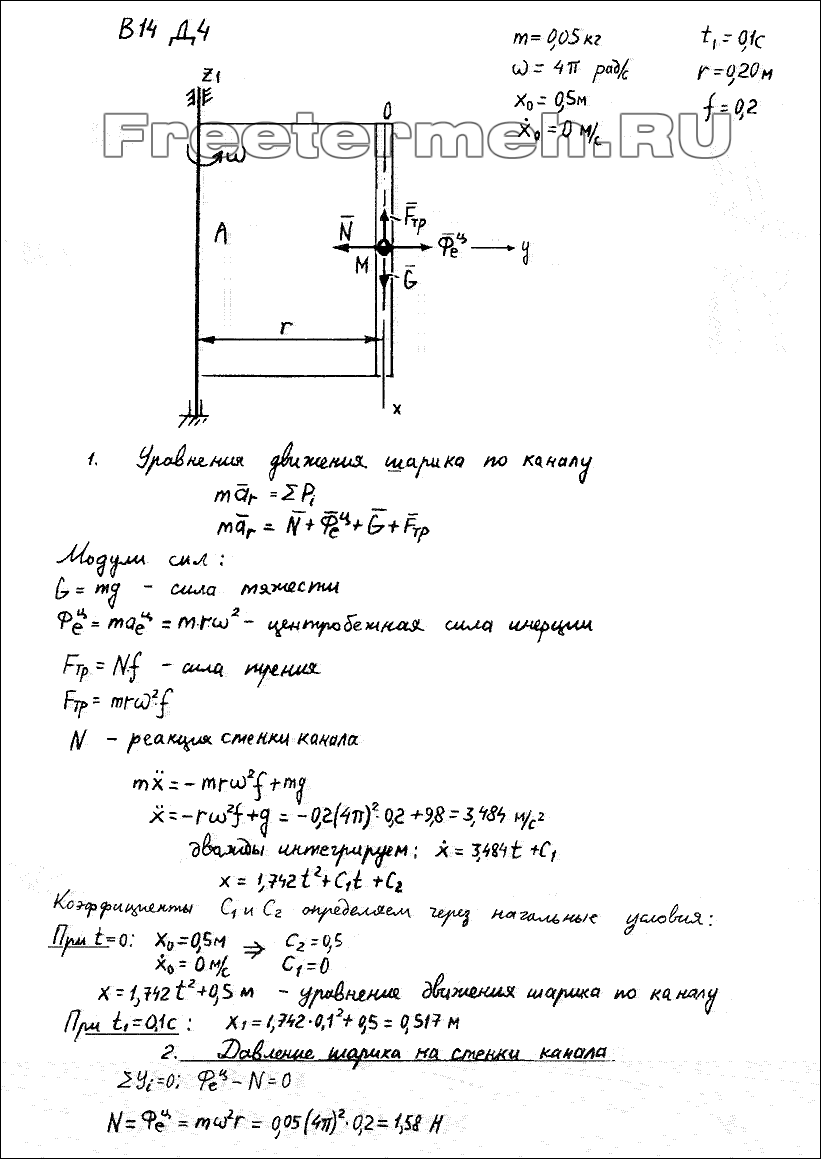 В14 Д4
m = 0,05 кг
t₁ = 0,1с
ω = 4π рад/с
r = 0,20 м
x₀ = 0,5м
f = 0,2
ẋ₀ = 0 м/с
Freetermeh.RU
z₁
O
ω
A
N̅
F̅тр
Φ̅eц
y
M
G̅
r
x
1. Уравнения движения шарика по каналу
ma̅r = ΣP̅i
ma̅r = N̅ + Φ̅eц + G̅ + F̅тр
Модули сил:
G = mg - сила тяжести
Φeц = maeц = m·rω² - центробежная сила инерции
Fтр = N·f - сила трения
Fтр = mrω²f
N - реакция стенки канала
mẍ = - mrω²f + mg
ẍ = -rω²f + g = -0,2(4π)²·0,2 + 9,8 = 3,484 м/с²
дважды интегрируем: ẋ = 3,484t + C₁
x = 1,742t² + C₁t + C₂
Коэффициенты C₁ и C₂ определяем через начальные условия:
При t=0: x₀ = 0,5м ⇒ C₂ = 0,5
ẋ₀ = 0 м/с C₁ = 0
x = 1,742t² + 0,5 м - уравнение движения шарика по каналу
При t₁=0,1с: x₁ = 1,742·0,1² + 0,5 = 0,517 м
2. Давление шарика на стенки канала
Σyi=0; Φeц - N = 0
N = Φeц = mω²r = 0,05(4π)²·0,2 = 1,58 Н